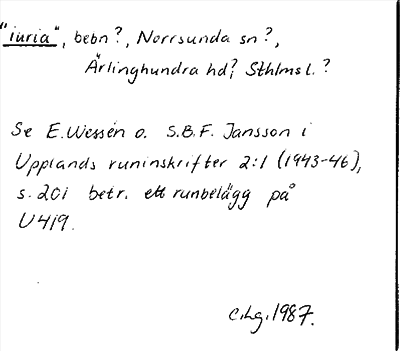 "iuria", bebn?, Norrsunda sn?,
Ärlinghundra hd?, Sthlms l.?
Se E. Wessén o. S.B.F. Jansson i
Upplands runinskrifter 2:1 (1943-46),
s. 201 betr. ett runbelägg på
U 419.
C.Lg. 1987.